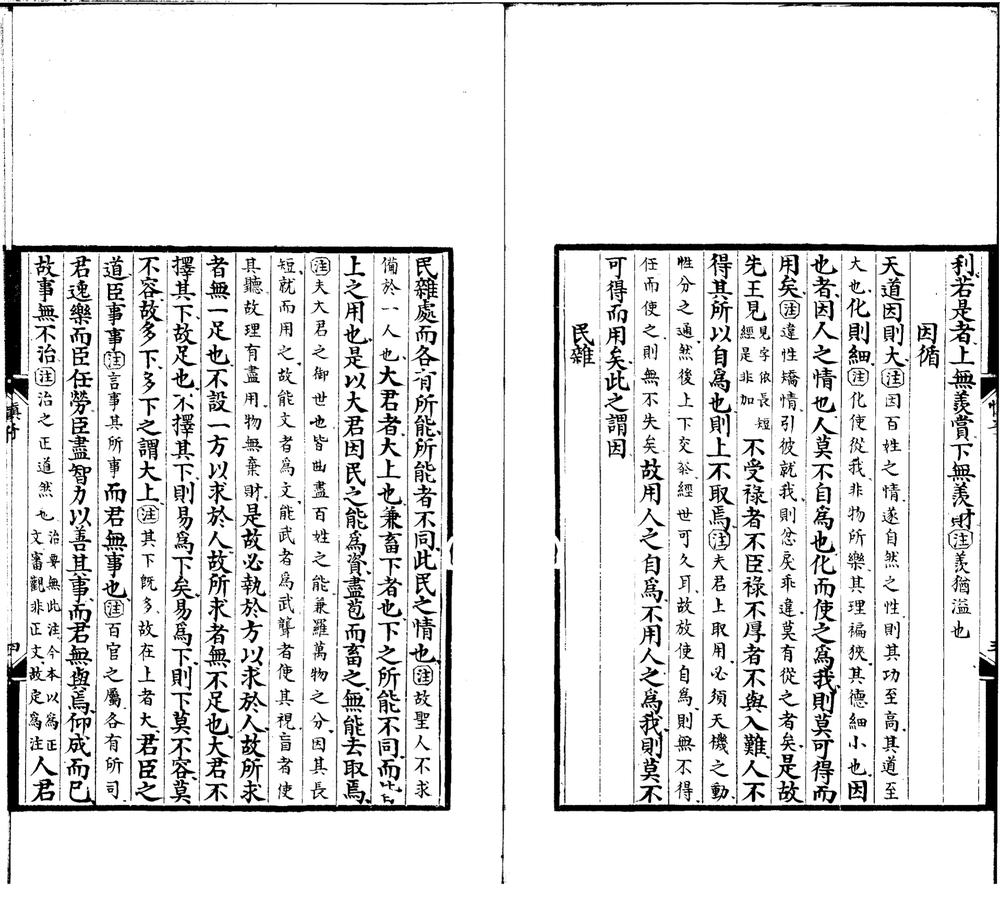 利若是者上無羨賞下無羨財注羨猶溢也
因循
天道因則大注因百姓之情遂自然之性則其功至高其道至
大也化則細注化使從我非物所樂其理褊狹其德細小也因
也者因人之情也人莫不自爲也化而使之爲我則莫可得而
用矣注違性矯情引彼就我則忿戾乖違莫有從之者矣是故
先王見見字依長短經是非加不受祿者不臣祿不厚者不與入難人不
得其所以自爲也則上不取焉注夫君上取用必須天機之動
性分之通然後上下交泰經世可久耳故放使自爲則無不得
任而使之則無不失矣故用人之自爲不用人之爲我則莫不
可得而用矣此之謂因
民雜
民雜處而各有所能所能者不同此民之情也注故聖人不求
備於一人也大君者大上也兼畜下者也下之所能不同而皆
上之用也是以大君因民之能爲資盡苞而畜之無能去取焉
注夫大君之御世也皆曲盡百姓之能兼羅萬物之分因其長
短就而用之故能文者爲文能武者爲武聾者使其視盲者使
其聽故理有盡用物無棄財是故必執於方以求於人故所求
者無一足也不設一方以求於人故所求者無不足也大君不
擇其下故足也不擇其下則易爲下矣易爲下則下莫不容莫
不容故多下多下之謂大上注其下既多故在上者大君臣之
道臣事事注言事其所事而君無事也注百官之屬各有所司
君逸樂而臣任勞臣盡智力以善其事而君無與焉仰成而已
故事無不治注治之正道然也治要無此注今本以爲正文審觀非正文故定爲注人君
慎子
四